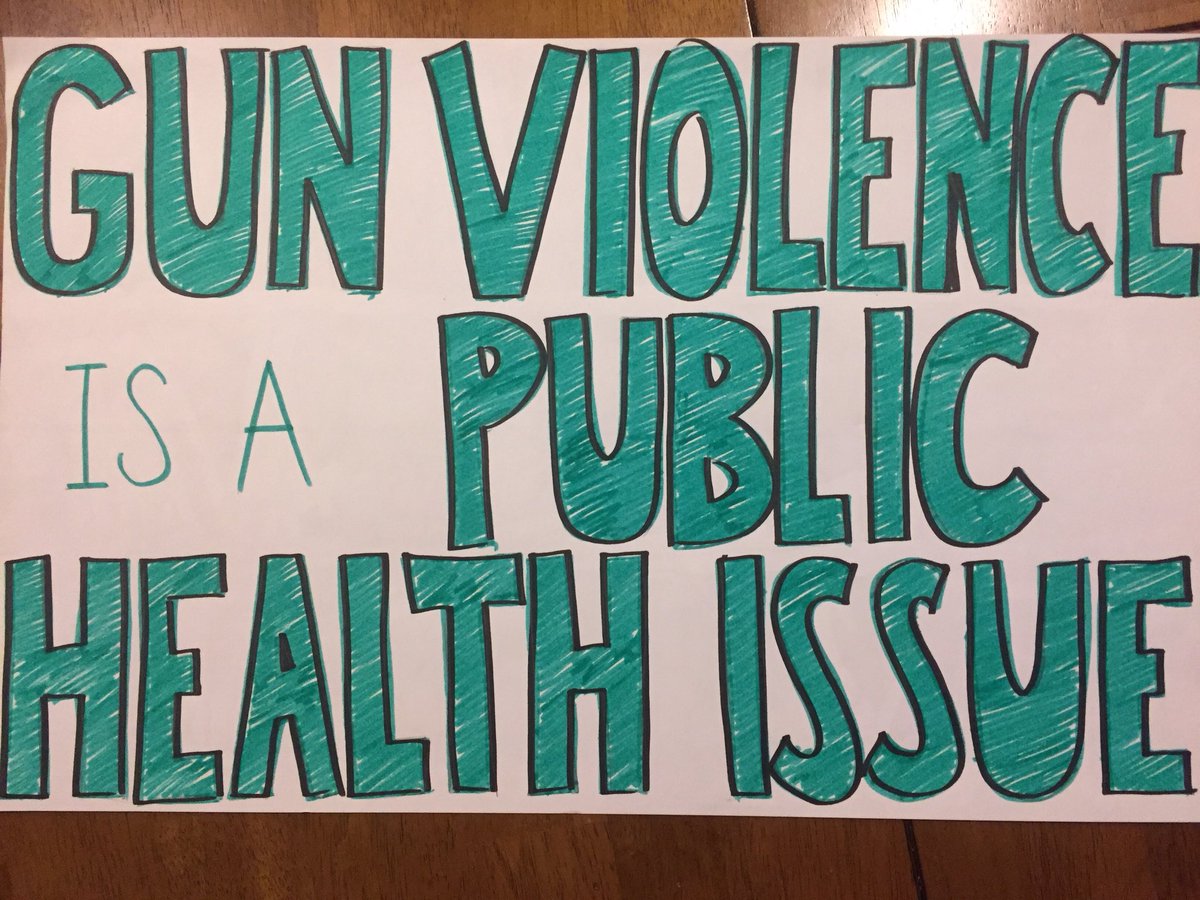 GUN VIOLENCE
IS A PUBLIC
HEALTH ISSUE